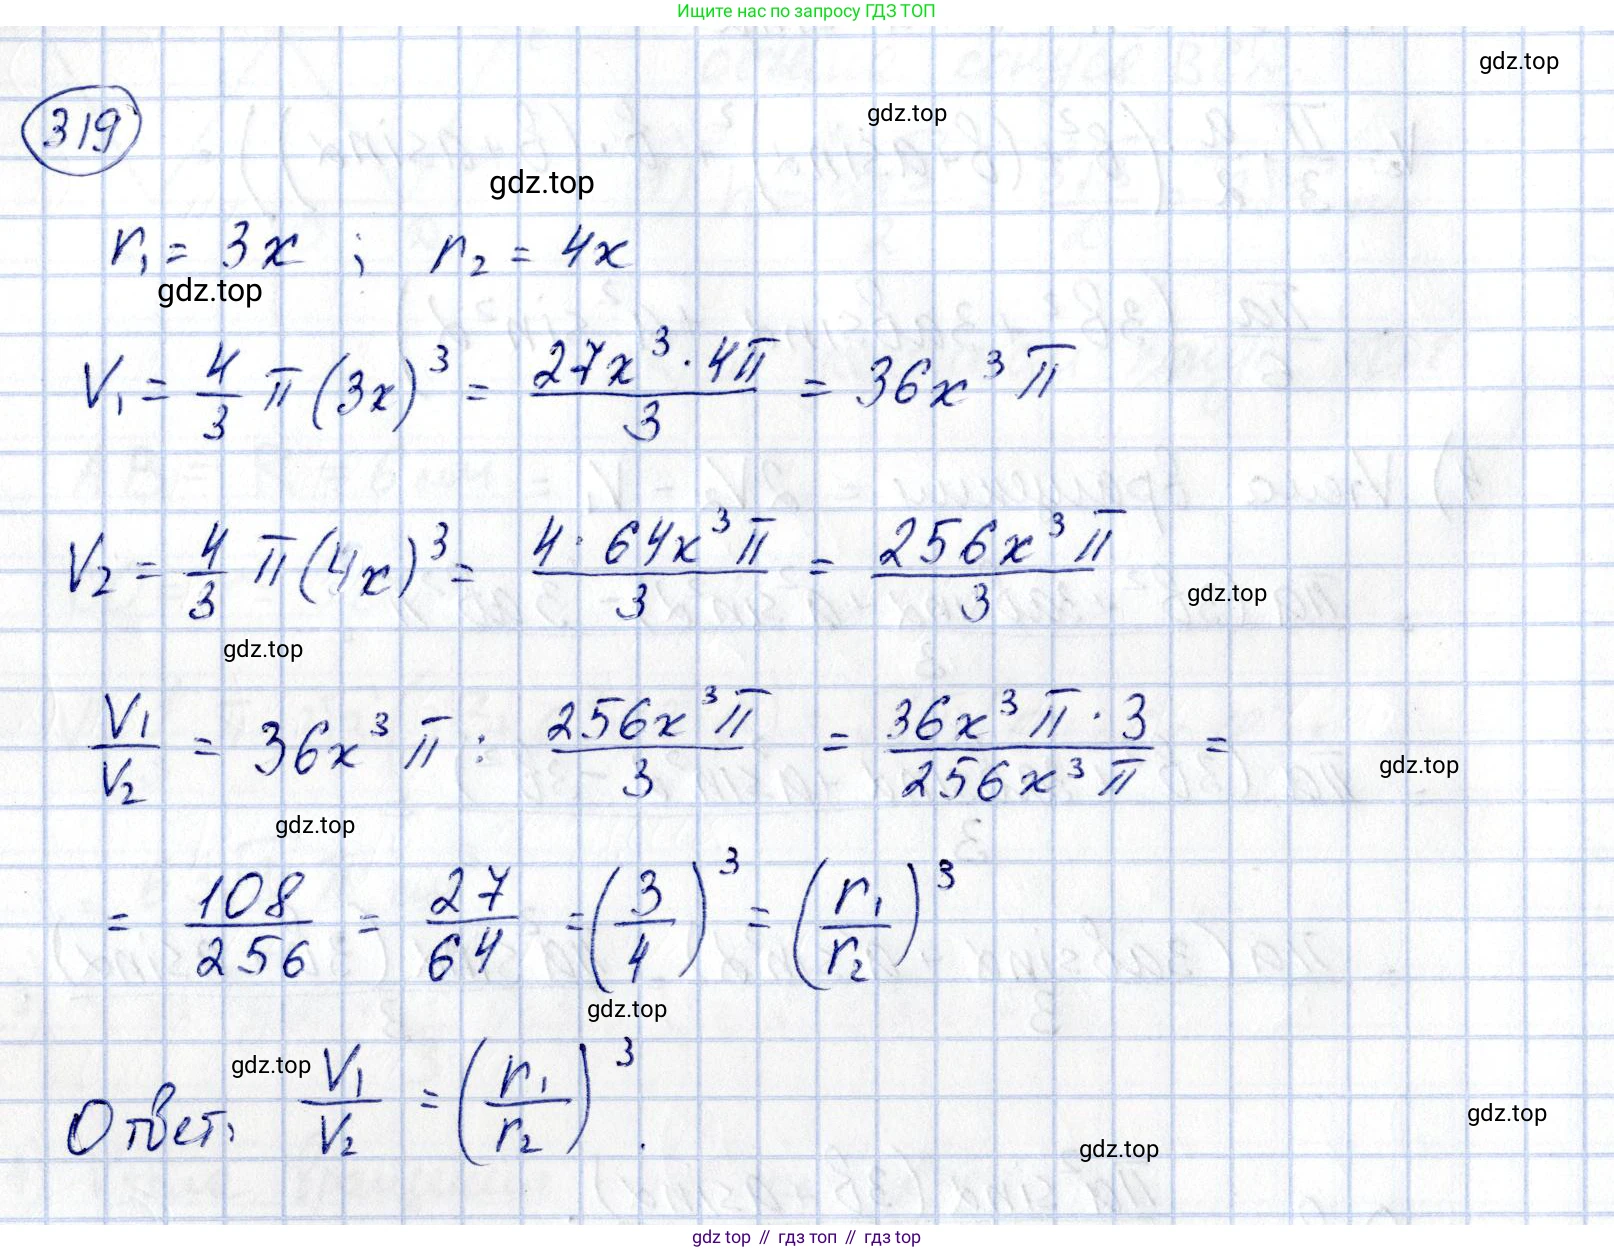 Ищите нас по запросу ГДЗ ТОП
gdz.top
gdz.top
319
gdz.top
r₁ = 3x ; r₂ = 4x
gdz.top
V₁ = 4/3 π (3x)³ = 27x³ · 4π / 3 = 36x³π
V₂ = 4/3 π (4x)³ = 4 · 64x³π / 3 = 256x³π / 3
gdz.top
gdz.top
V₁/V₂ = 36x³π : 256x³π / 3 = 36x³π · 3 / 256x³π =
gdz.top
gdz.top
= 108/256 = 27/64 = (3/4)³ = (r₁/r₂)³
gdz.top
gdz.top
Ответ: V₁/V₂ = (r₁/r₂)³.
gdz.top
gdz.top
gdz top // гдз топ // гдз top